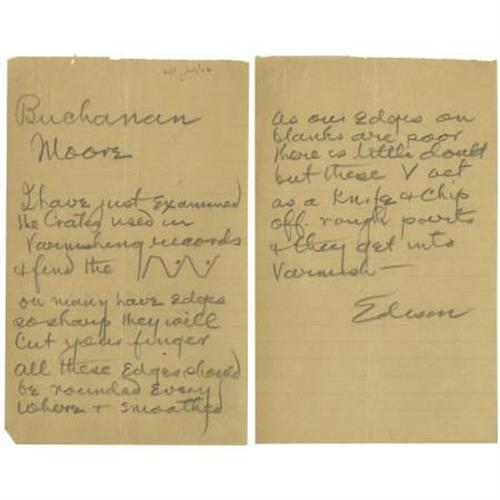 Buchanan
Moore
I have just Examined
the Crates used in
Varnishing records
& find the
on many have Edges
so sharp they will
Cut your finger
all these Edges should
be rounded Every
where & smoothed
as our Edges on
blanks are poor
there is little doubt
but these V act
as a Knife & Chip
off rough parts
& they get into
Varnish—
Edison